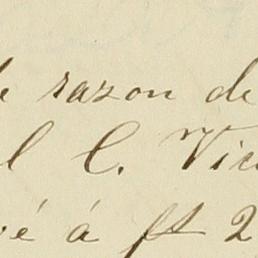 e razon de
l C. Vic
vé á ft 2